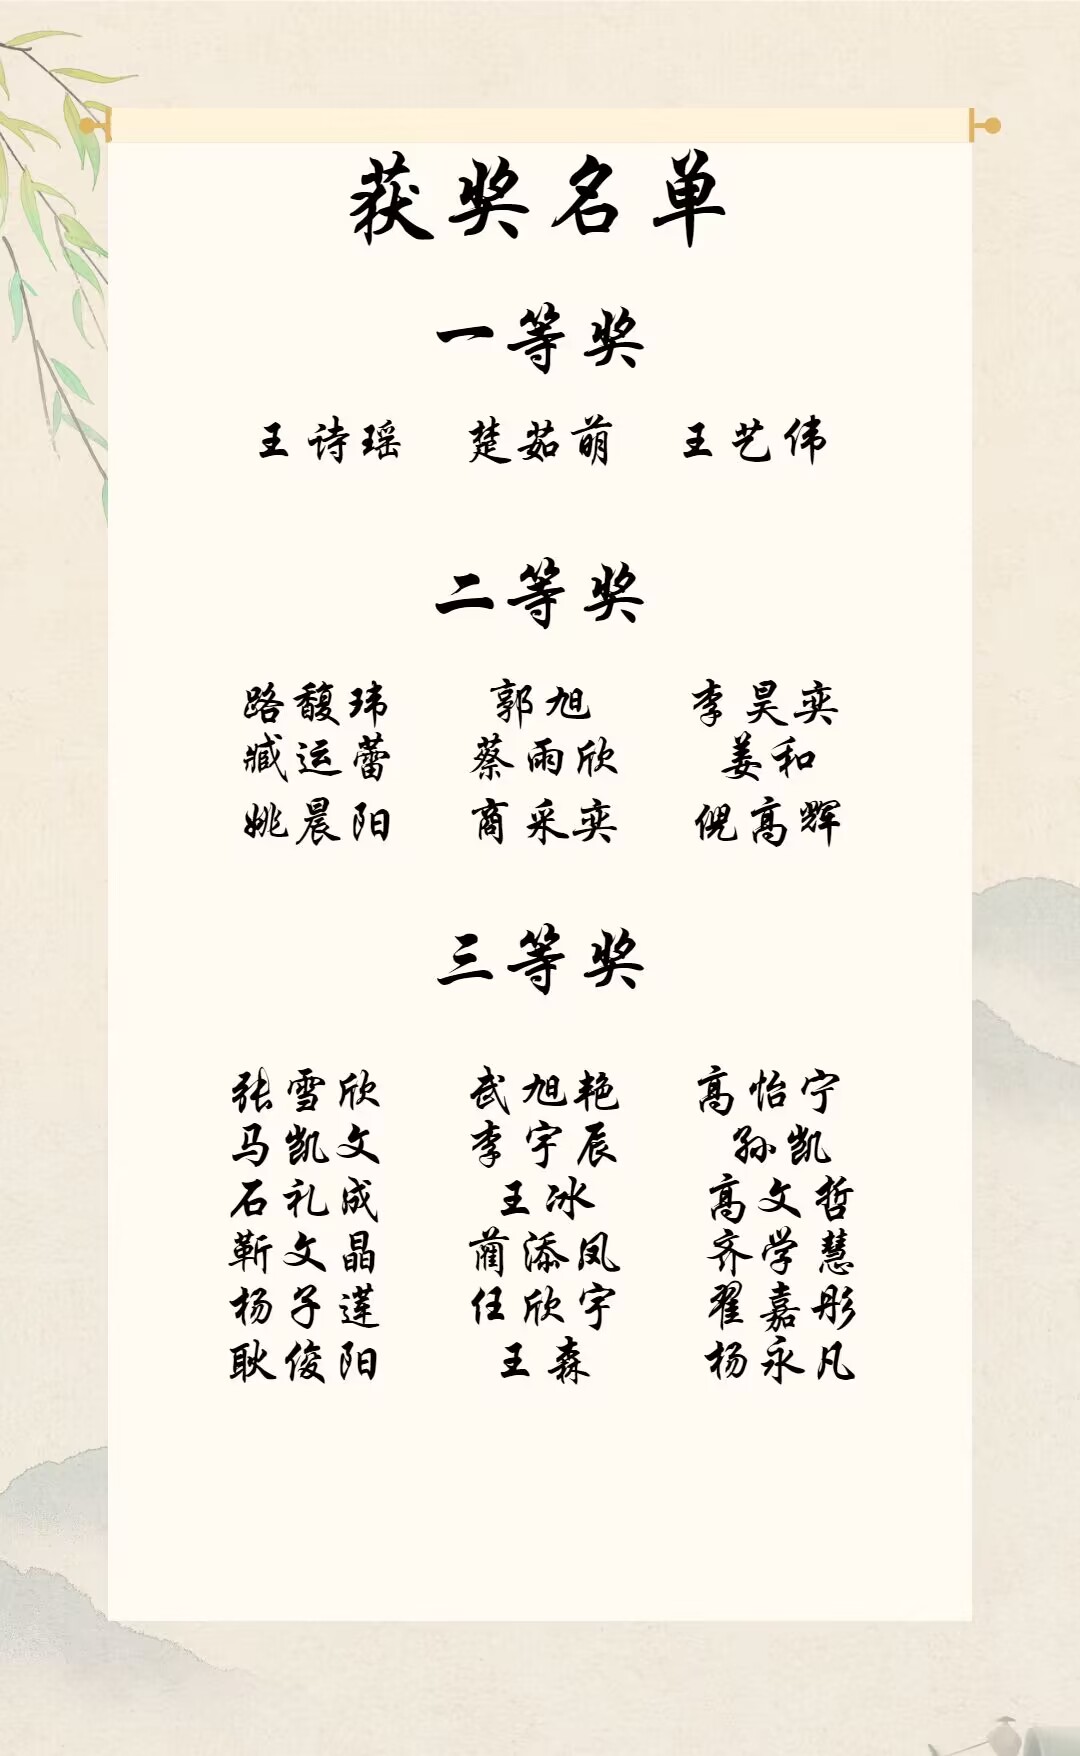 获奖名单
一等奖
王诗瑶 楚茹萌 王艺伟
二等奖
路馥玮 郭旭 李昊奕
臧运蕾 蔡雨欣 姜和
姚晨阳 商采奕 倪高辉
三等奖
张雪欣 武旭艳 高怡宁
马凯文 李宇辰 孙凯
石礼成 王冰 高文哲
靳文晶 蔺添凤 齐学慧
杨子莲 任欣宇 翟嘉彤
耿俊阳 王森 杨永凡